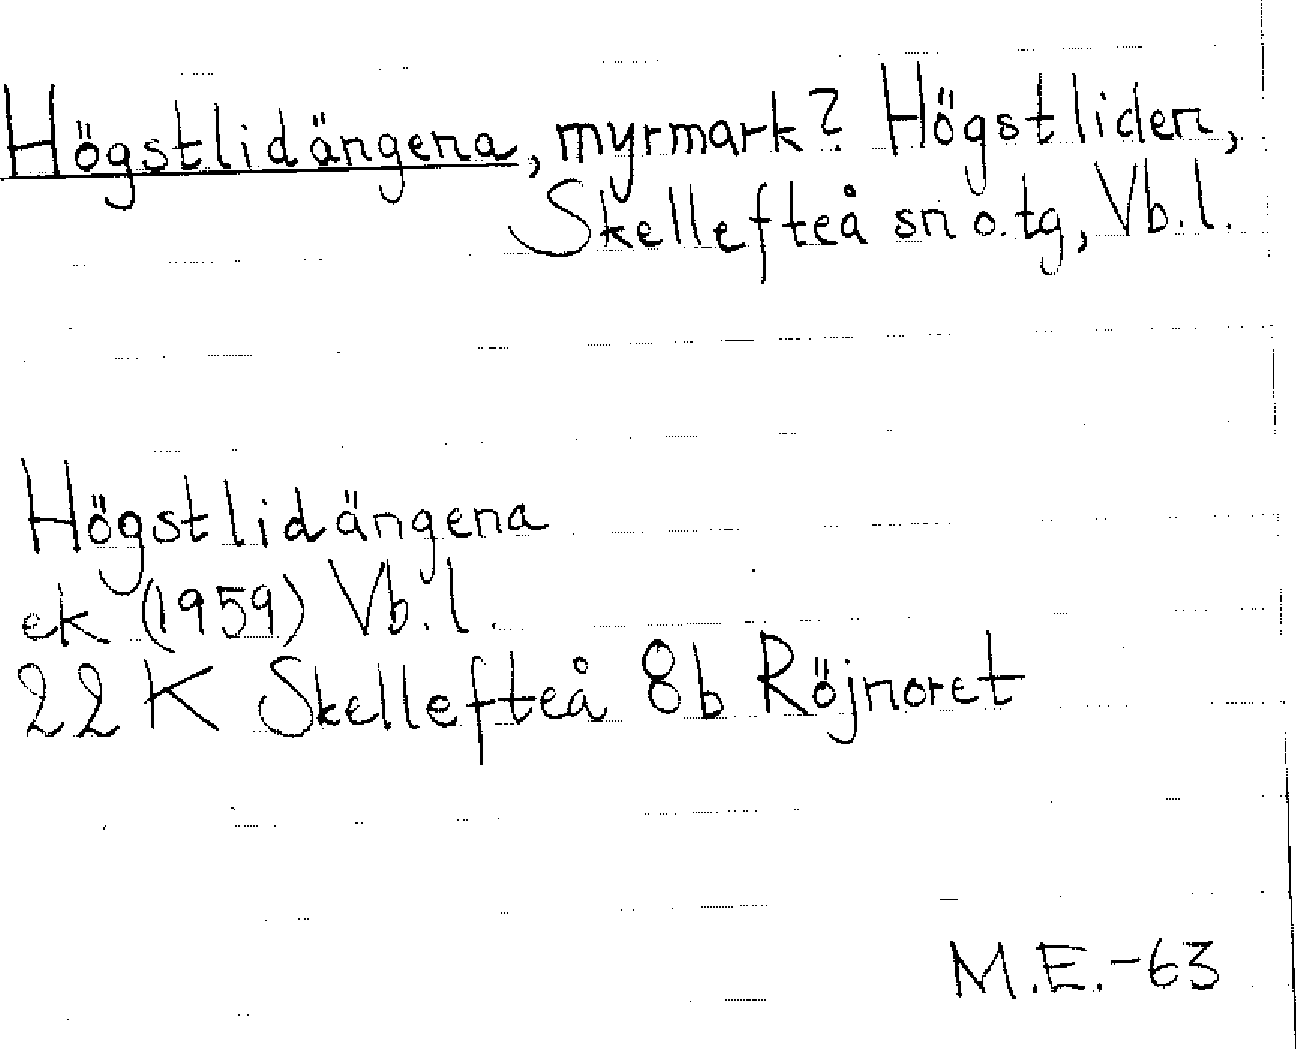 Högstlidängena, myrmark? Högstliden,
Skellefteå sn o. tg, Vb. l.
Högstlidängena
ek (1959) Vb. l.
22 K Skellefteå 8b Röjnoret
M.E.-63